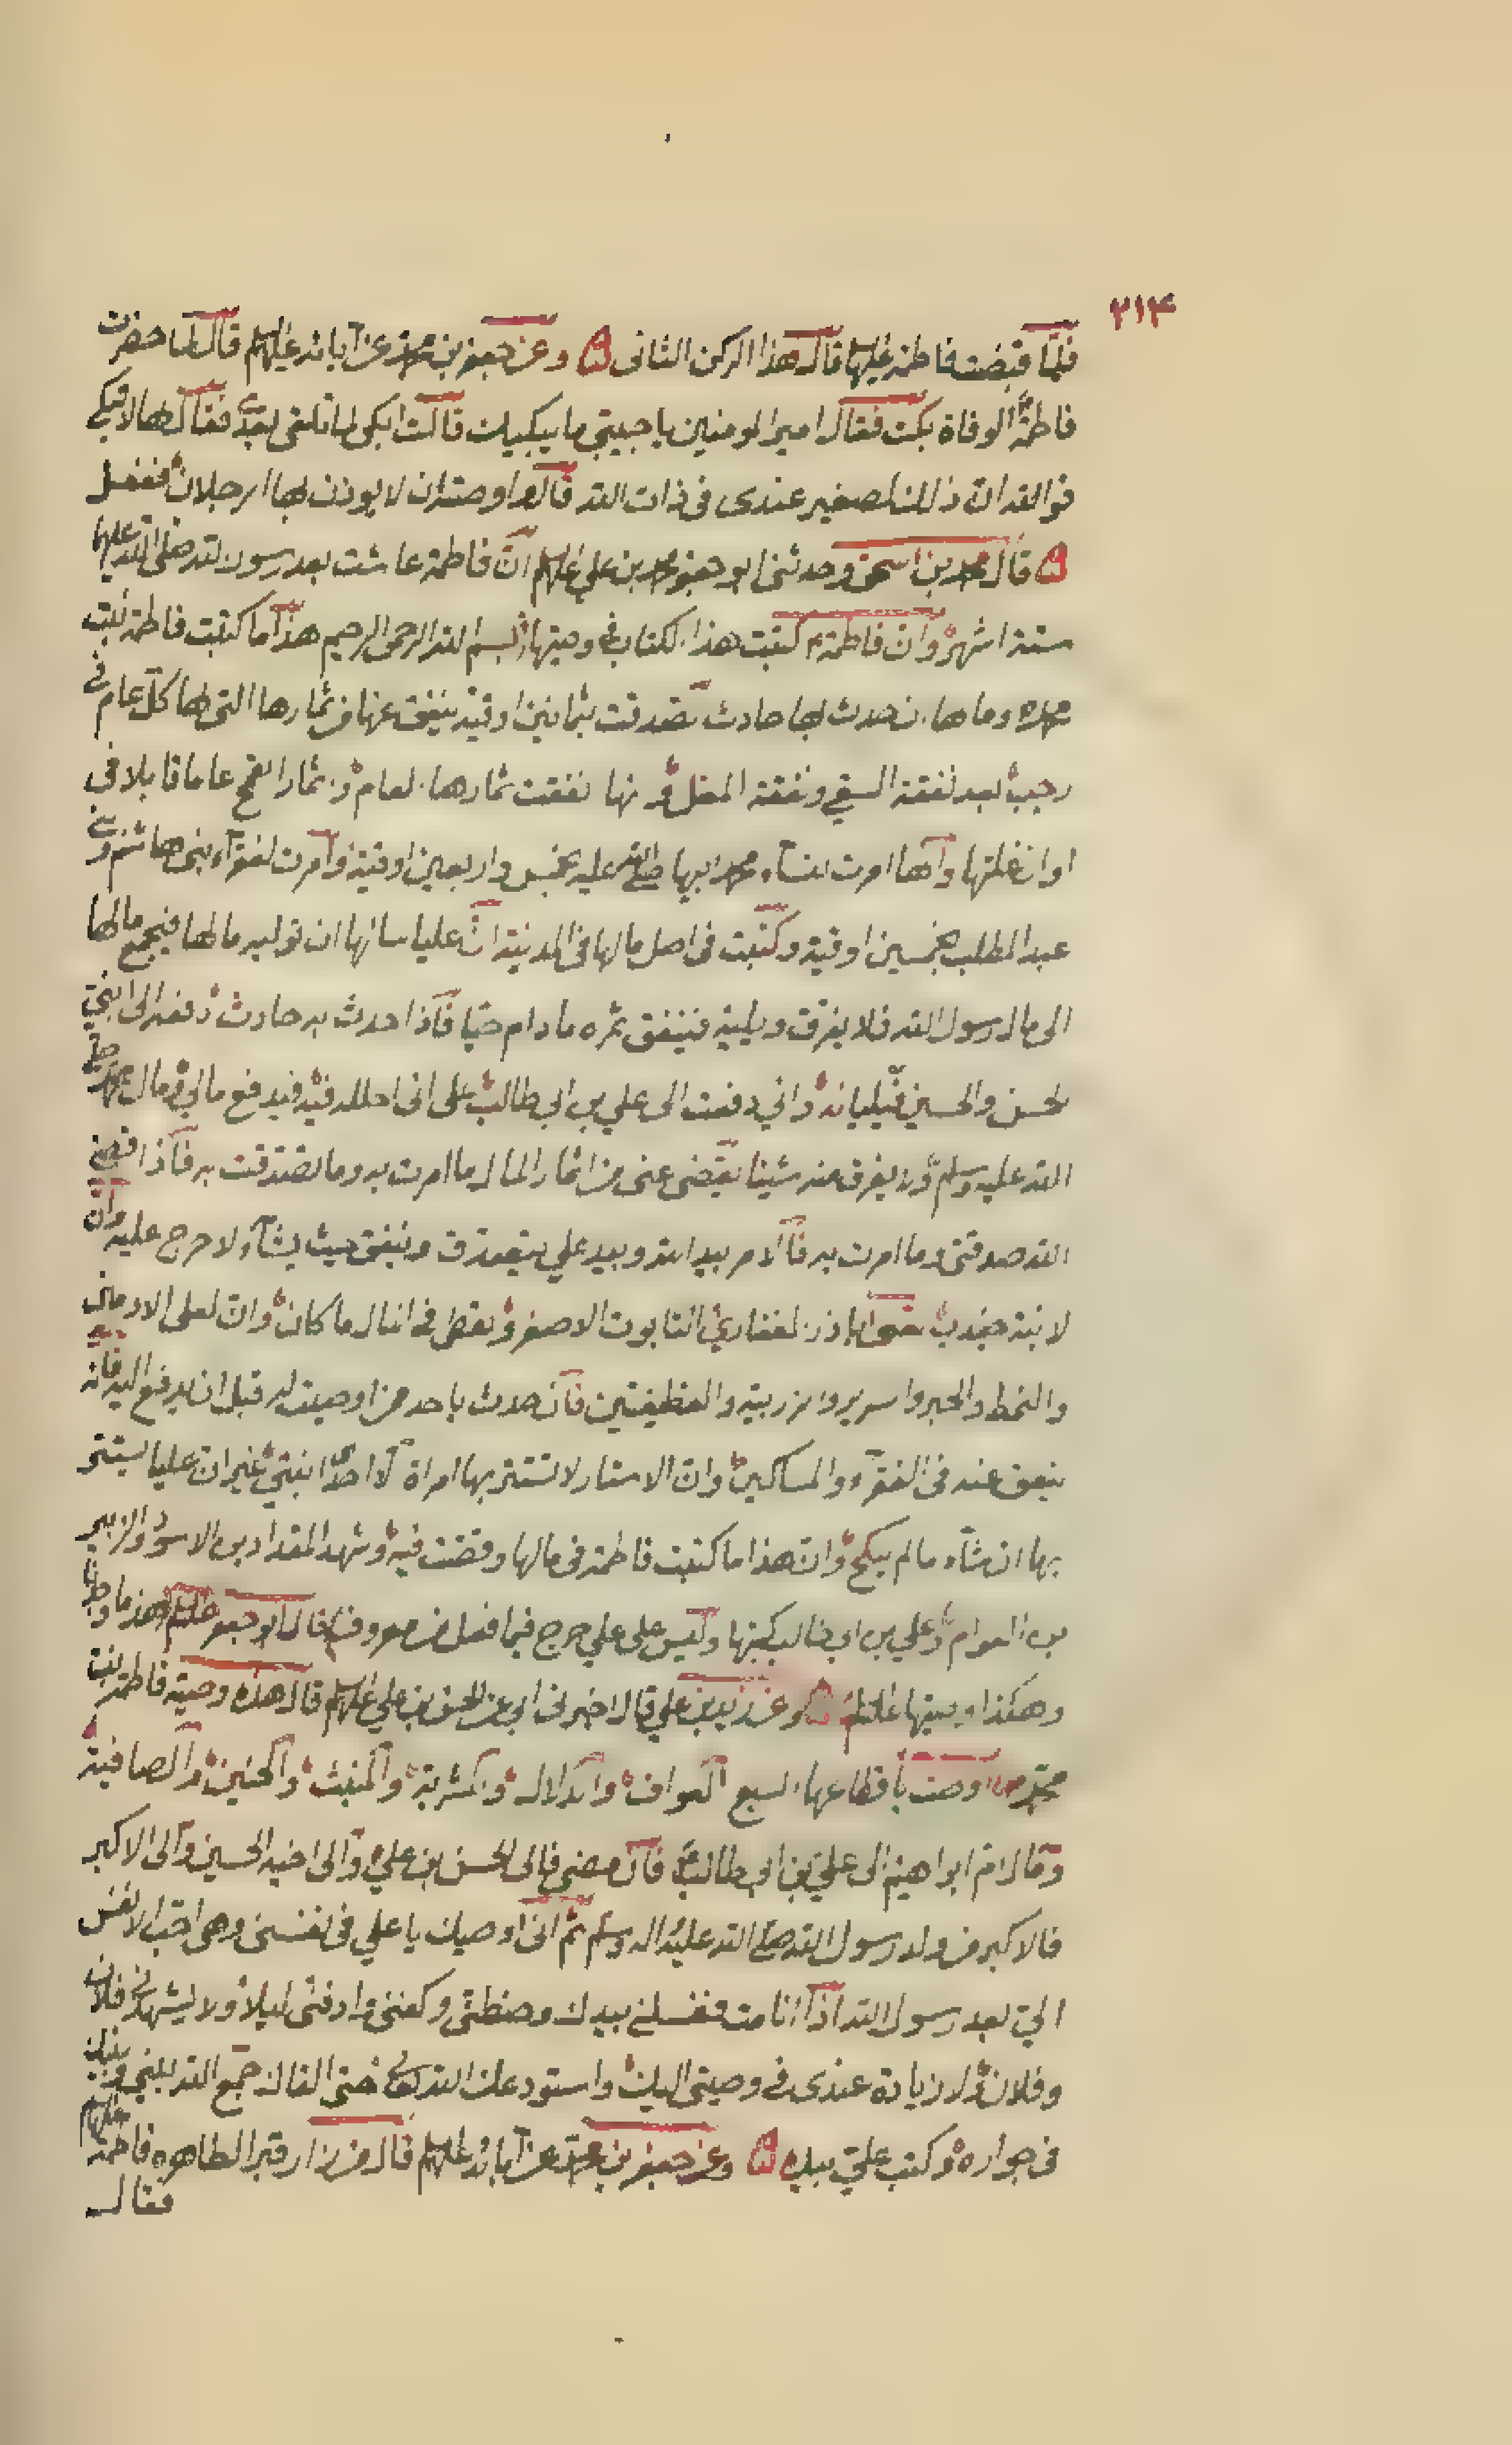 ٣١٤
فلما قبضت فاطمة عليها قال هذا الركن الثانى ۵ وعن جعفر بن محمد عن آبائه عليهم قال لما حضرت
فاطمة الوفاة بكت فقال امير المومنين يا حبيبتي ما يبكيك قالت ابكى لما تلقى بعدى فقال لها لا تبكي
فوالله ان ذلك لصغير عندى فى ذات الله قال واوصته ان لا يوذن لها الرجلان ففعل
۵ قال محمد بن اسحق وحدثنى ابو جعفر محمد بن علي عليهم ان فاطمة عاشت بعد رسول الله صلى الله عليهما
ستة اشهر وان فاطمة كتبت هذا الكتاب فى وصيتها بسم الله الرحمن الرحيم هذا ما كتبت فاطمة بنت
محمد ومالها ان حدث بها حادث تصدقت بثمانين اوقية ينفق عنها من ثمارها التى لها كل عام فى
رجب بعد نفقة السقي ونفقة المغل وانها نفقت ثمارها العام وثمار القمح عاما قابلا فى
اوان غلتها وانها امرت لنساء محمد ابيها صلى الله عليه بخمس واربعين اوقية وامرت لفقراء بنى هاشم وبنى
عبد المطلب بخمسين اوقية وكتبت فى اصل مالها فى المدينة ان عليا سالها ان توليه مالها فيجمع مالها
الى مال رسول الله فلا يفرق ويليه فينفق ثمره مادام حيا فاذا حدث به حادث دفعه الى ابني
الحسن والحسين فيليانه وانى دفعت الى علي بن ابي طالب على انى احلله فيه فيدفع مالي ومال محمد صلى
الله عليه وسلم ولا يفرق منه شيئا يقضى عنى من اثمار المال ما امرت به وما تصدقت به فاذا قضى
الله صدقتى وما امرت به فالامر بيد الله وبيد علي يتصدق وينفق حيث يشاء لا حرج عليه وان
لابنة جندب بنت ابى ذر الغفاري التابوت الاصغر وتعطى فى المال ما كان وان لعلى الادمين
والنمط والحبر والسرير والزربية والقطيفتين فان حدث باحد من اوصيت له قبل ان يدفع اليه فانه
ينفق عنه فى الفقراء والمساكين وان الاستار لا تستتر بها امراة الا احدى ابنتي غير ان عليا يستتر
بها ان شاء ما لم ينكح وان هذا ما كتبت فاطمة فى مالها وقضت فيه وشهد المقداد بن الاسود والزبير
بن العوام وعلي بن ابي طالب كتبها وليس على علي حرج فيما فعل من معروف قال ابو جعفر عليه السلم هذا ما وجدنا
وهكذا وصيتها عليها السلم ۵ وعن زيد بن علي قال اخبرنى ابى عن الحسن بن علي عليهم قال هذه وصية فاطمة بنت
محمد ص اوصت باقطاعها السبع العواف والدلال والمشربة والمبيت والحسنى والصافية
ومال ام ابراهيم الى علي بن ابي طالب فان مضى فالى الحسن بن علي والى اخيه الحسين والى الاكبر
فالاكبر من ولد رسول الله صلى الله عليه واله وسلم ثم انى اوصيك يا علي فى نفسى وهى احب الانفس
الي بعد رسول الله اذا انا مت فغسلني بيدك وحنطنى وكفنى وادفنى ليلا ولا يشهدنى فلان
وفلان ولا زيادة عندى فى وصيتى اليك واستودعك الله تعالى حتى القاك جمع الله بينى وبينك
فى جواره وكتب علي بيده ۵ وعن جعفر بن محمد عن آبائه عليهم قال من زار قبر الطاهره فاطمة عليها السلم
فقال